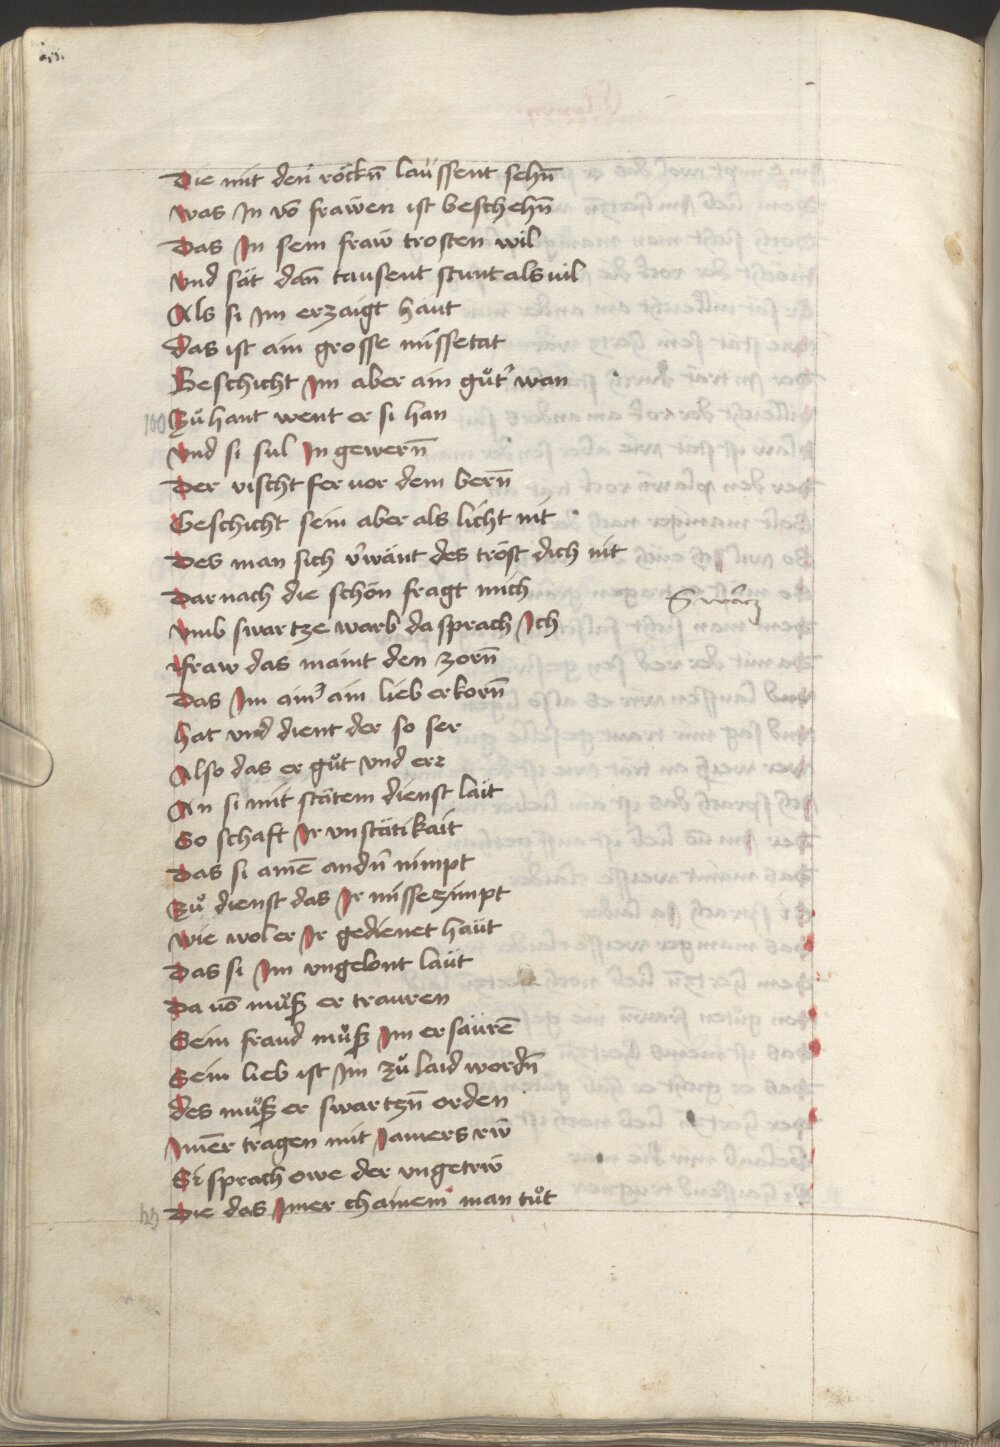 Die mit den röckn̄ laüssent sehn̄
Was In vō frawen ist beschehn̄
Das In sein fraw trosten wil
Vnd sät dan̄ tausent stunt als vil
Als si Im erzaigt haut
das ist ain grosse missetat
Beschicht Im aber ain gůt' wan
100 Zů hant went er si han
Vnd si sul In gewern̄
Der vischt fer vor dem bern̄
Geschicht sein aber als licht nit
Des man sich v'wänt des tröst dich nit
Dar nach die schön fragt mich
Swärcz
Vmb swartze warb da sprach Ich
Fraw das maint den zorn̄
Das Im ain' ain lieb erkorn̄
hat vnd dient der so ser
Also das er gůt vnd err
An si mit stätem dienst lait
So schaft Ir vnstätikait
Das si ainē andn̄ nimpt
Zů dienst das Ir missezimpt
Wie wol er Ir gedienet haüt
Das si Im vngelont laüt
Da vō můß er trauren
Sein fraud můß Im ersäurē
Sein lieb ist Im zů laid wordn̄
des můß er swartzn̄ orden
Imēr tragen mit Jamers rẅ
Si sprach owe der vngetrẅ
Die das Imer chainem man tůt